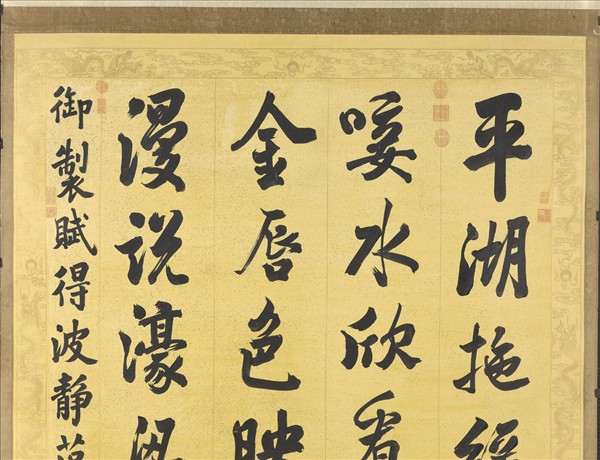 平湖拖
唼水欣看
金唇色映
漫說濠
御製賦得波靜